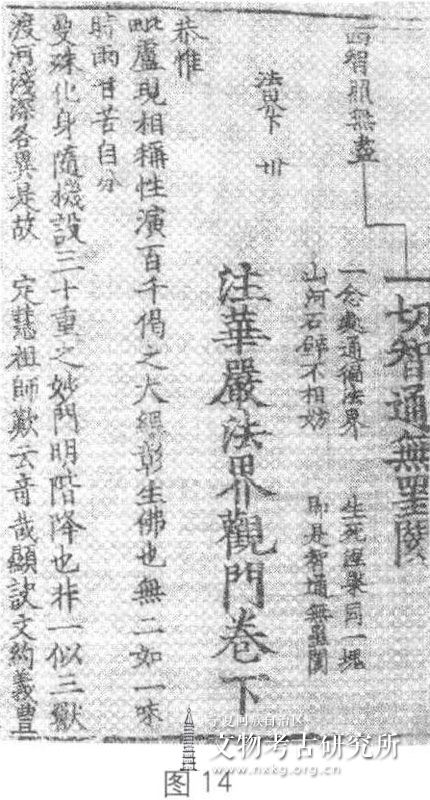 一切智通無罣閡
四智照無盡
一念處通徧法界 生死涅槃同一塊
山河石壁不相妨 即是智通無罣閡
法界下 卅
注華嚴法界觀門卷下
恭惟
毗盧現相稱性演百千偈之大經彰生佛也無二如一味
時雨甘苦自分
曼殊化身隨機設三十重之妙門明階降也非一似三獸
渡河淺深各異是故 定慧祖師歎云奇哉顯訣文約義豐
宁夏回族自治区
文物考古研究所
www.nxkg.org.cn
图 14